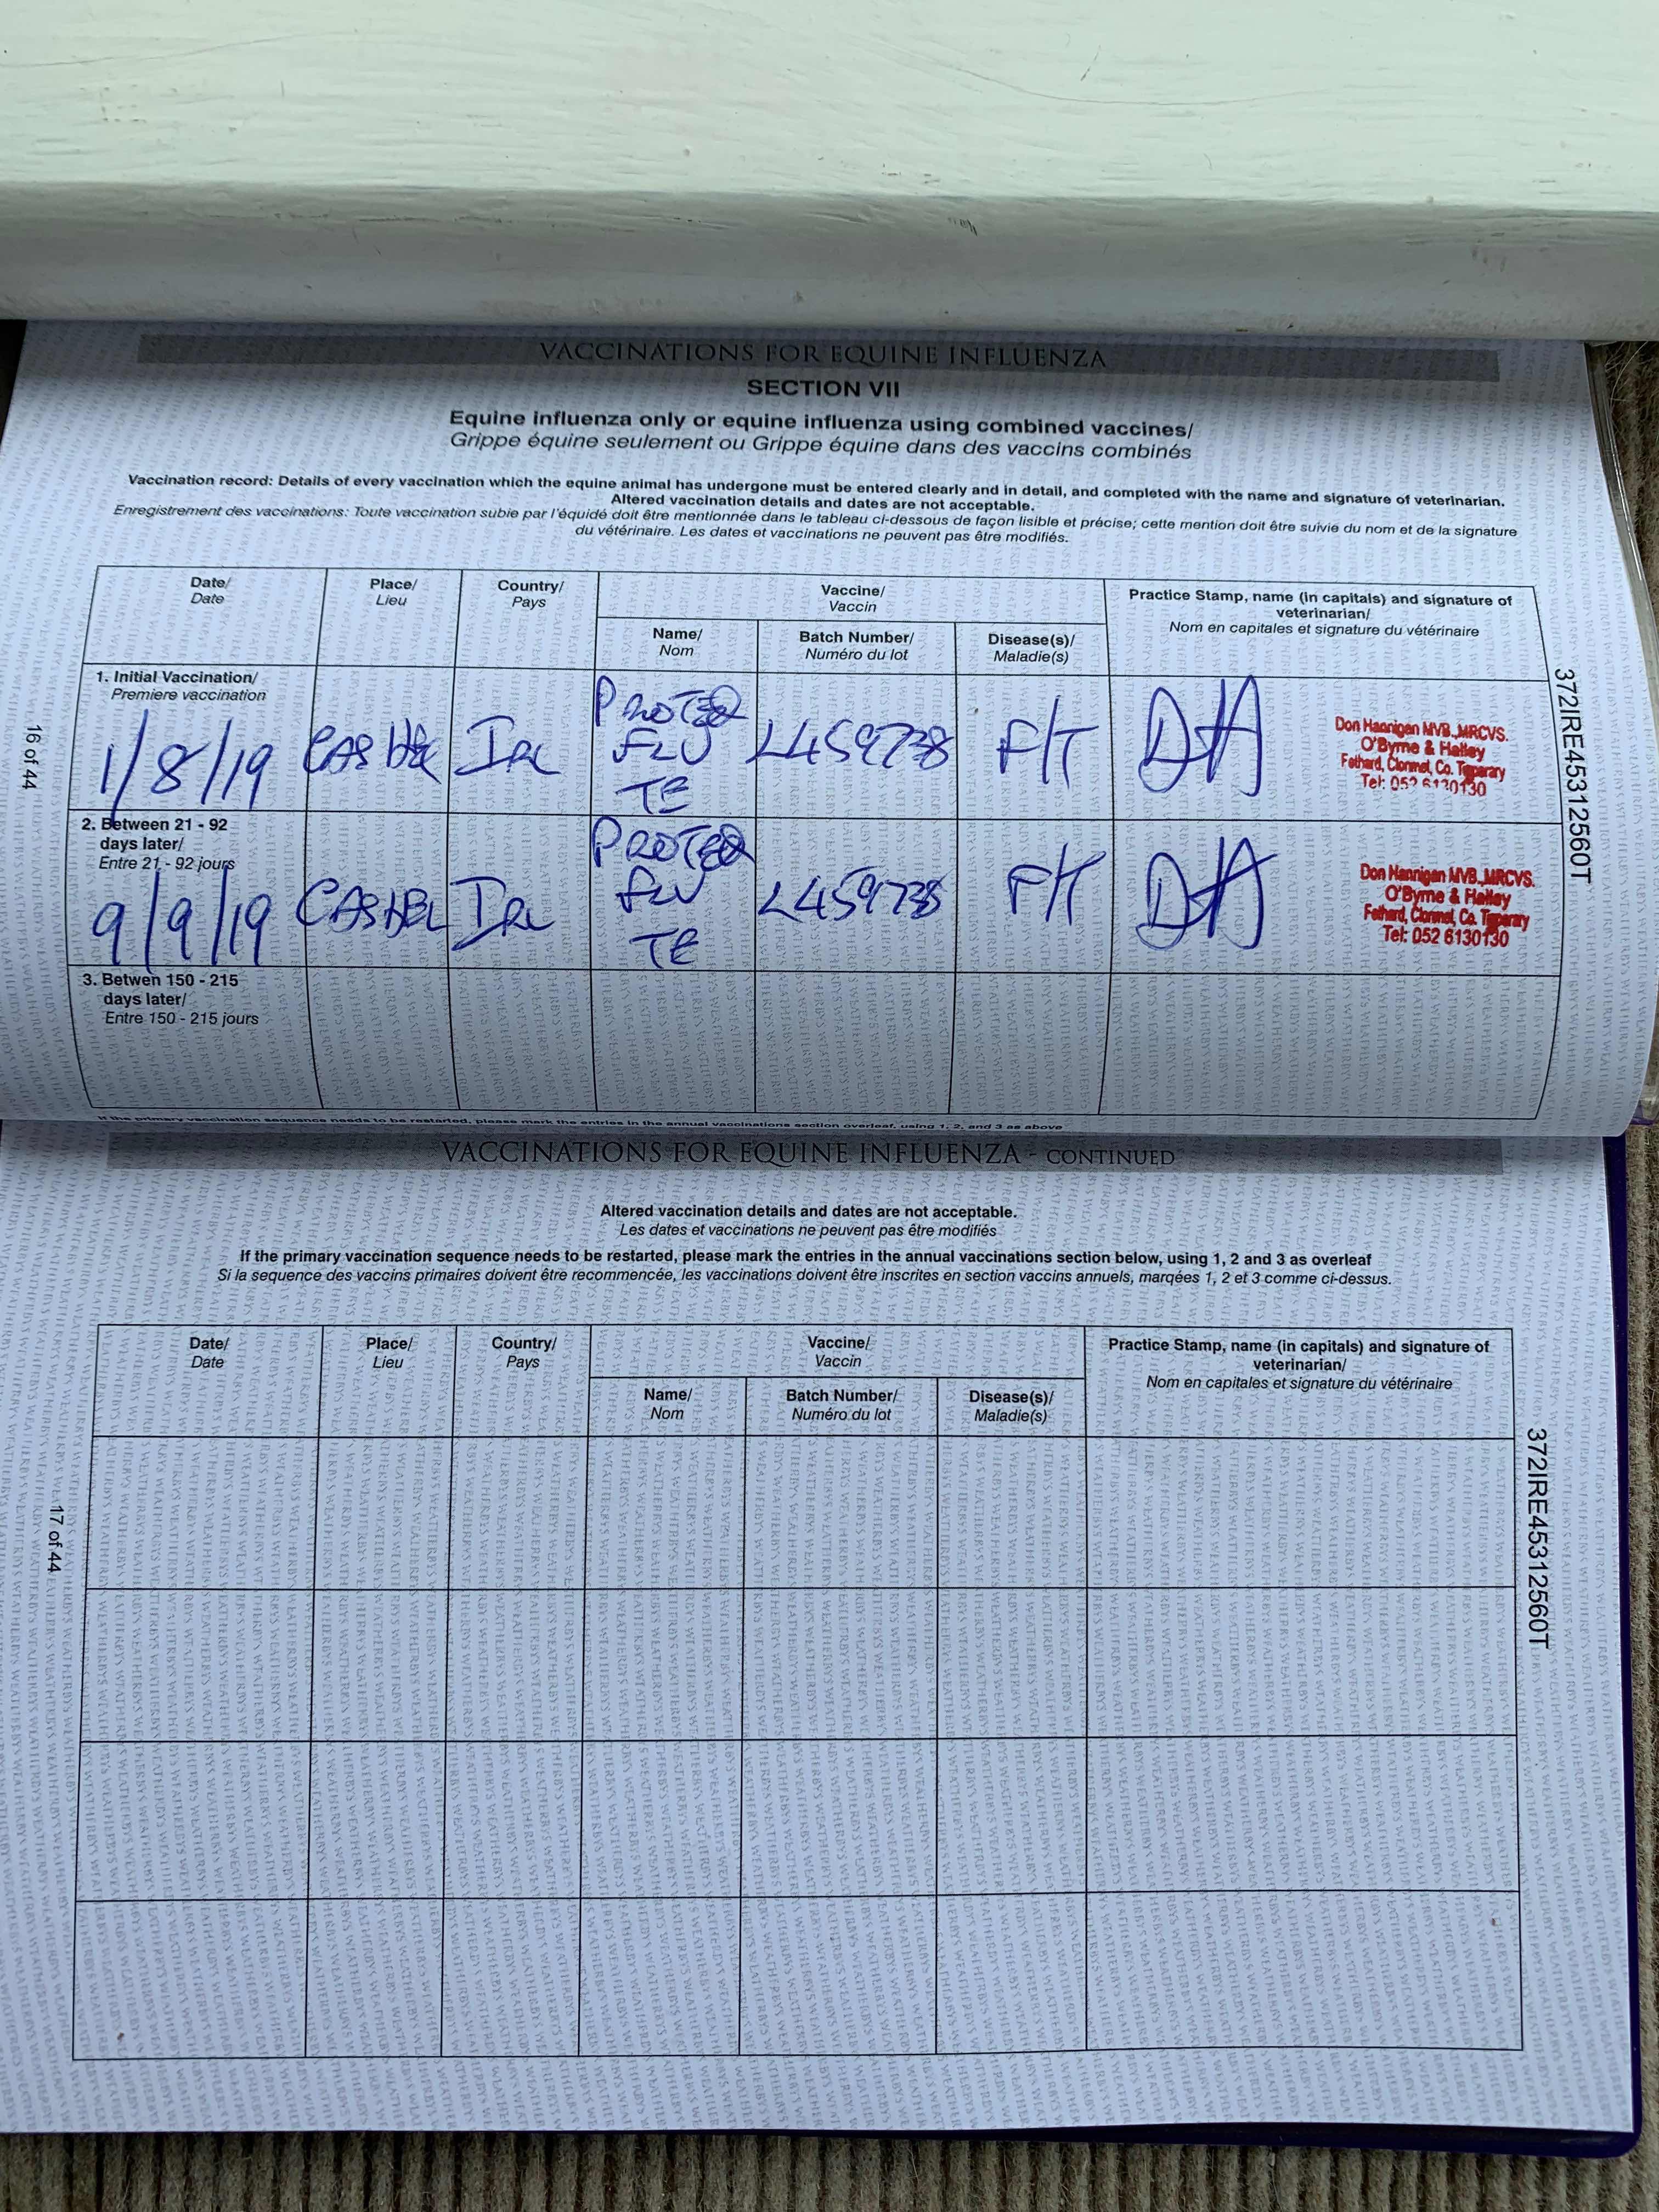 VACCINATIONS FOR EQUINE INFLUENZA
SECTION VII
Equine influenza only or equine influenza using combined vaccines/
Grippe équine seulement ou Grippe équine dans des vaccins combinés
Vaccination record: Details of every vaccination which the equine animal has undergone must be entered clearly and in detail, and completed with the name and signature of veterinarian.
Altered vaccination details and dates are not acceptable.
Enregistrement des vaccinations: Toute vaccination subie par l'équidé doit être mentionnée dans le tableau ci-dessous de façon lisible et précise; cette mention doit être suivie du nom et de la signature
du vétérinaire. Les dates et vaccinations ne peuvent pas être modifiés.
Date/
Date
Place/
Lieu
Country/
Pays
Vaccine/
Vaccin
Name/
Nom
Batch Number/
Numéro du lot
Disease(s)/
Maladie(s)
Practice Stamp, name (in capitals) and signature of
veterinarian/
Nom en capitales et signature du vétérinaire
1. Initial Vaccination/
Premiere vaccination
1/8/19
CASHEL
IRL
PROTEQ
FLU
TE
L459738
F/T
DH
Don Hannigan MVB.,MRCVS.
O'Byrne & Halley
Fethard, Clonmel, Co. Tipperary
Tel: 052 6130130
2. Between 21 - 92
days later/
Entre 21 - 92 jours
9/9/19
CASHEL
IRL
PROTEQ
FLU
TE
L459738
F/T
DH
Don Hannigan MVB.,MRCVS.
O'Byrne & Halley
Fethard, Clonmel, Co. Tipperary
Tel: 052 6130130
3. Betwen 150 - 215
days later/
Entre 150 - 215 jours
If the primary vaccination sequence needs to be restarted, please mark the entries in the annual vaccinations section overleaf, using 1, 2, and 3 as above
16 of 44
372IRE45312560T
VACCINATIONS FOR EQUINE INFLUENZA - CONTINUED
Altered vaccination details and dates are not acceptable.
Les dates et vaccinations ne peuvent pas être modifiés
If the primary vaccination sequence needs to be restarted, please mark the entries in the annual vaccinations section below, using 1, 2 and 3 as overleaf
Si la sequence des vaccins primaires doivent être recommencée, les vaccinations doivent être inscrites en section vaccins annuels, marqées 1, 2 et 3 comme ci-dessus.
Date/
Date
Place/
Lieu
Country/
Pays
Vaccine/
Vaccin
Name/
Nom
Batch Number/
Numéro du lot
Disease(s)/
Maladie(s)
Practice Stamp, name (in capitals) and signature of
veterinarian/
Nom en capitales et signature du vétérinaire
17 of 44
372IRE45312560T